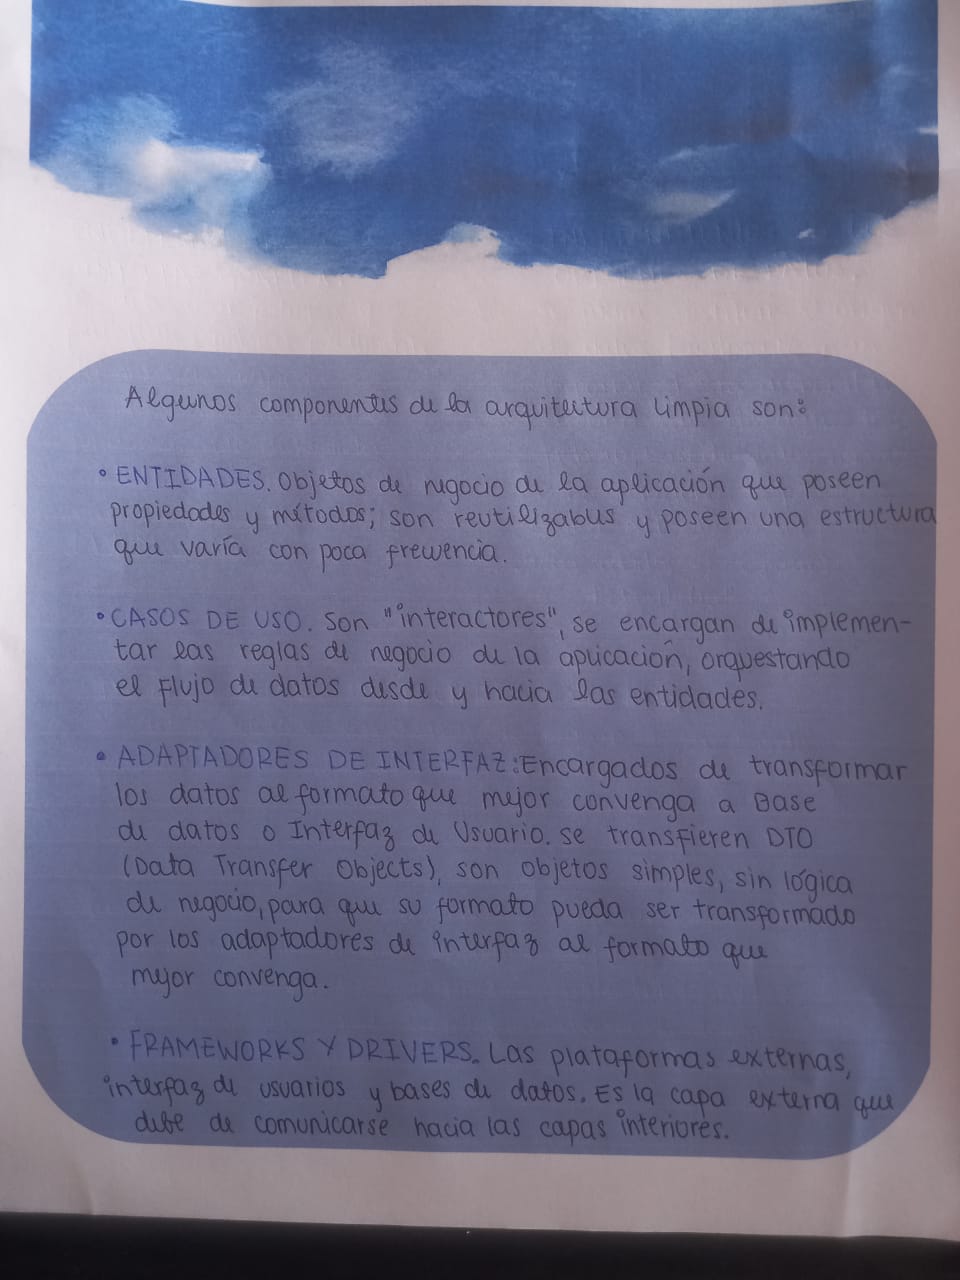 Algunos componentes de la arquitectura limpia son:
• ENTIDADES. Objetos de negocio de la aplicación que poseen
propiedades y métodos; son reutilizables y poseen una estructura
que varía con poca frecuencia.
• CASOS DE USO. Son "interactores", se encargan de implemen-
tar las reglas de negocio de la aplicación, orquestando
el flujo de datos desde y hacia las entidades.
• ADAPTADORES DE INTERFAZ: Encargados de transformar
los datos al formato que mejor convenga a Base
de datos o Interfaz de Usuario. Se transfieren DTO
(Data Transfer Objects), son objetos simples, sin lógica
de negocio, para que su formato pueda ser transformado
por los adaptadores de interfaz al formato que
mejor convenga.
• FRAMEWORKS Y DRIVERS. Las plataformas externas,
interfaz de usuarios y bases de datos. Es la capa externa que
debe de comunicarse hacia las capas interiores.